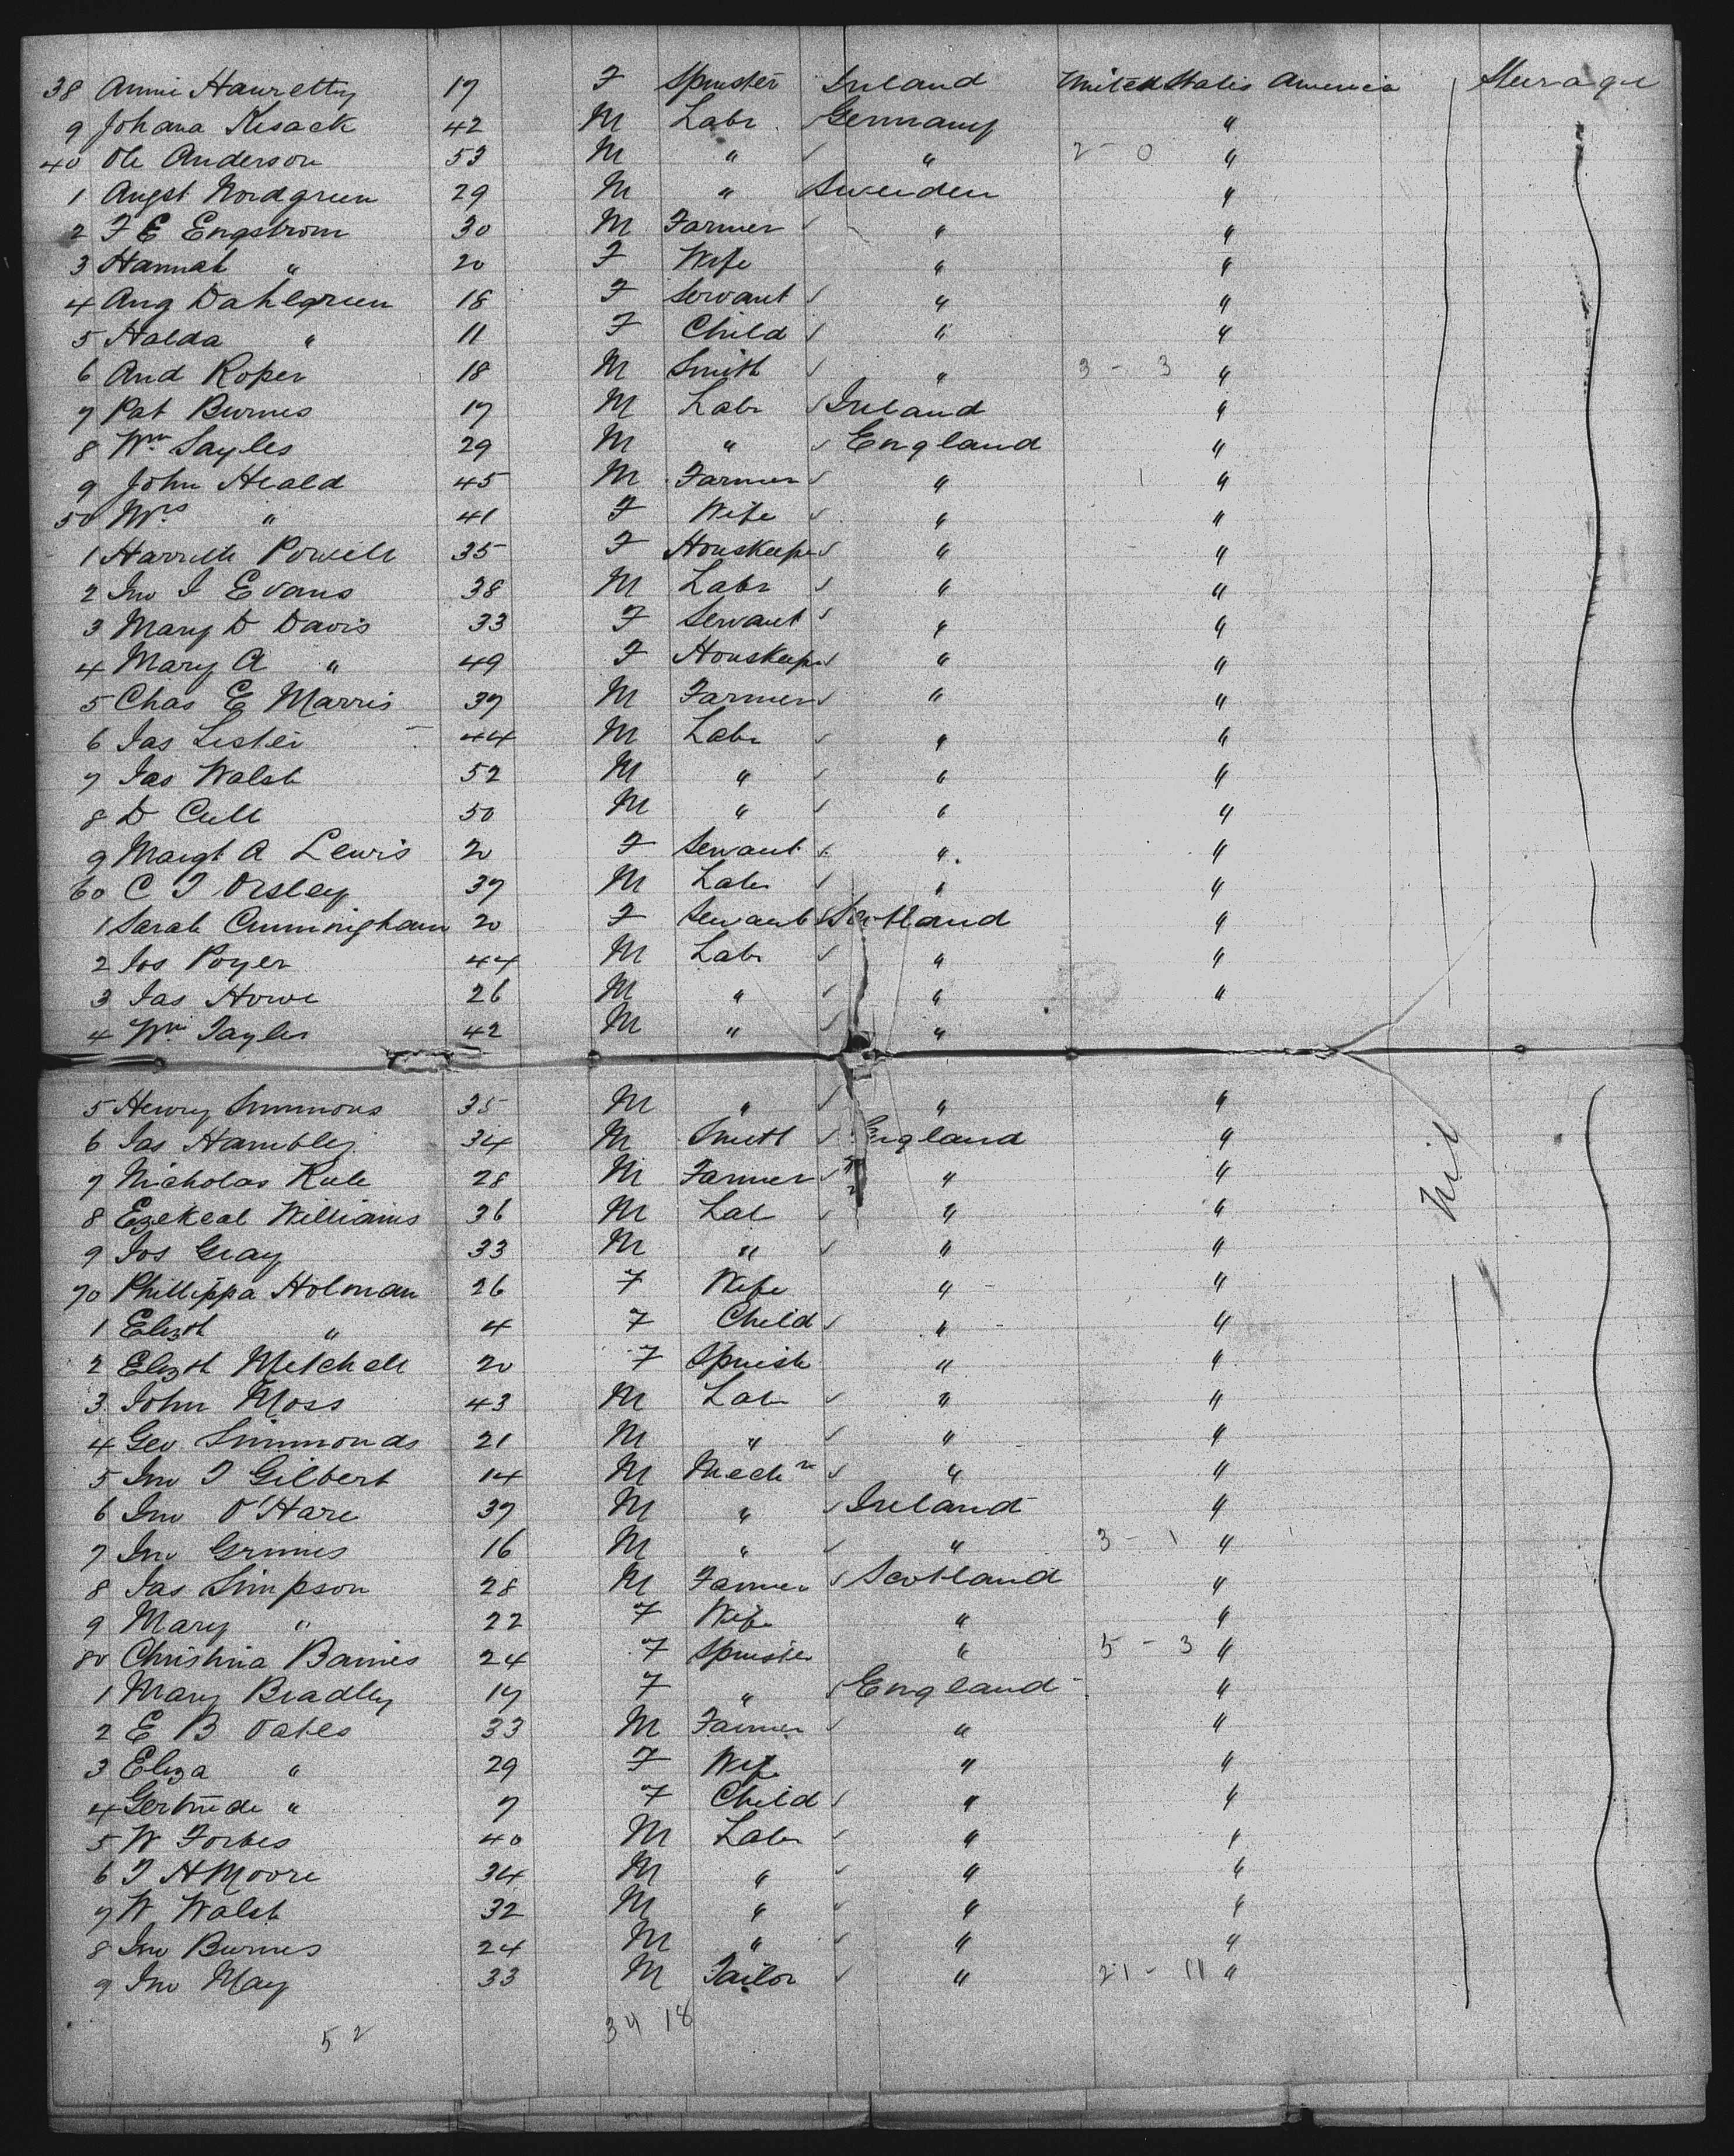 38 Annie Hauretty 17 F Spinster Ireland United States America Steerage
9 Johana Kesack 42 M Labr Germany "
40 Ole Anderson 53 M " " 2 - 0 "
1 Augst Nordgreen 29 M " Sweeden "
2 F E Engstrom 30 M Farmer " "
3 Hannah " 20 F Wife " "
4 Aug Dahlgreen 18 F Servant " "
5 Halda " 11 F Child " "
6 And Roper 18 M Smith " 3 - 3 "
7 Pat Burnes 17 M Labr Ireland "
8 Wm Sayles 29 M " England "
9 John Heald 45 M Farmer " 1 "
50 Mrs " 41 F Wife " "
1 Harriett Powell 35 F Houskeeper " "
2 Jno J Evans 38 M Labr " "
3 Mary D Davis 33 F Servant " "
4 Mary A " 49 F Houskeeper " "
5 Chas E Marris 37 M Farmer " "
6 Jas Lester 44 M Labr " "
7 Jas Walsh 52 M " " "
8 D Cull 50 M " " "
9 Margt A Lewis 20 F Servant " "
60 C T Orsley 37 M Labr " "
1 Sarah Cunningham 20 F Servant Scotland "
2 Jos Poyer 44 M Labr " "
3 Jas Howe 26 M " " "
4 Wm Tayler 42 M " "
5 Henry Simmons 35 M " " "
6 Jas Hambley 34 M Smith England " Nil
7 Nicholas Rule 28 M Farmer " "
8 Ezekeal Williams 36 M Lab " "
9 Jos Gray 33 M " " "
70 Phillippa Holman 26 F Wife " "
1 Elizth " 4 F Child " "
2 Elizth Mitchell 20 F Spinster " "
3 John Moss 43 M Labr " "
4 Geo Simmonds 21 M " " "
5 Jno T Gilbert 14 M Mechn " "
6 Jno O'Hare 37 M " Ireland "
7 Jno Grimes 16 M " " 3 - 1 "
8 Jas Simpson 28 M Farmer Scotland "
9 Mary " 22 F Wife " "
80 Christina Baines 24 F Spinster " 5 - 3 "
1 Mary Bradley 17 F " England "
2 E B Oates 33 M Farmer " "
3 Eliza " 29 F Wife " "
4 Gertrude " 7 F Child " "
5 W Forbes 40 M Labr " "
6 T H Moore 34 M " " "
7 W Walsh 32 M " " "
8 Jno Burnes 24 M " " "
9 Jno May 33 M Tailor " 21 - 11 "
52 34 18